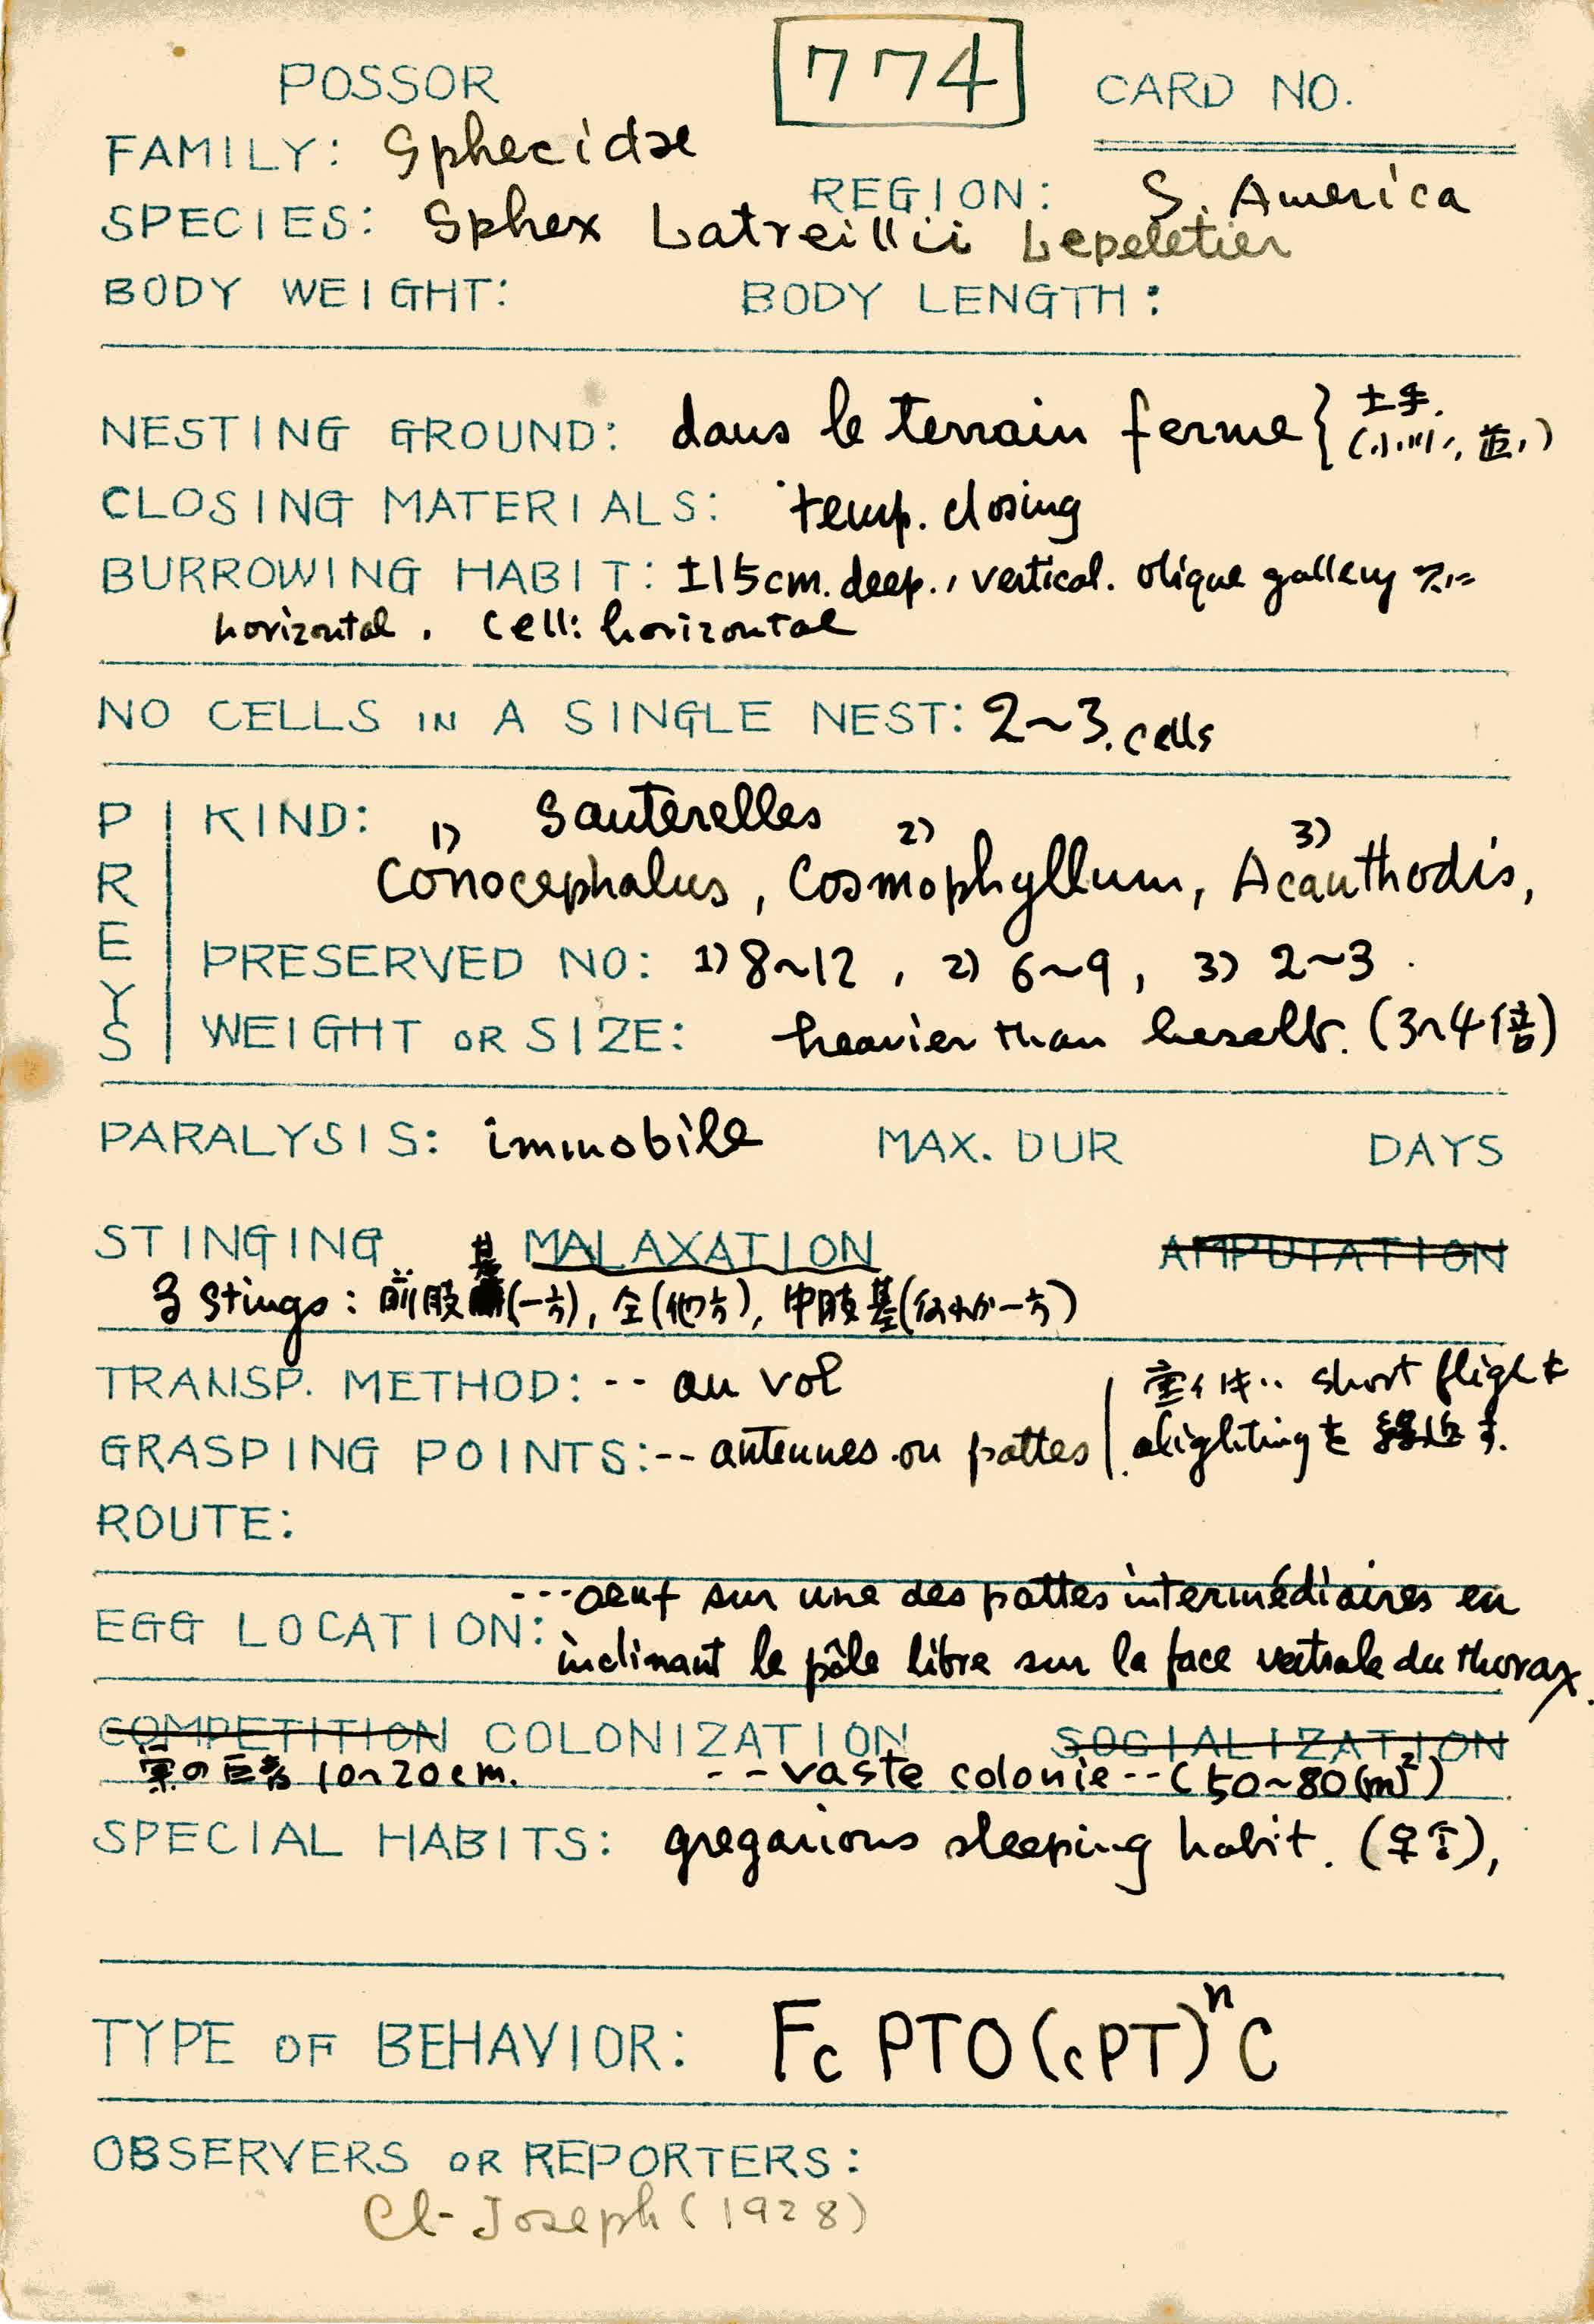 POSSOR
774
CARD NO.
FAMILY: Sphecidae
REGION: S. America
SPECIES: Sphex Latreillii Lepeletier
BODY WEIGHT: BODY LENGTH:
NESTING GROUND: dans le terrain ferme { 土手.
CLOSING MATERIALS: temp. closing
BURROWING HABIT: ±15cm. deep., vertical. olique gallery 次に
horizontal. Cell: horizontal
NO CELLS IN A SINGLE NEST: 2~3. cells
PREYS
KIND: Sauterelles
1) Conocephalus, 2) Cosmophyllum, 3) Acanthodis,
PRESERVED NO: 1) 8~12, 2) 6~9, 3) 2~3.
WEIGHT OR SIZE: heavier than herself. (3~4倍)
PARALYSIS: immobile MAX. DUR DAYS
STINGING MALAXATION AMPUTATION
3 Stings: 前肢基(一方), 仝(他方), 中肢基(何れか一方)
TRANSP. METHOD: -- au vol
重い時.. short flight と
GRASPING POINTS: -- antennes ou pattes
alightingを繰返す.
ROUTE:
EGG LOCATION: ---oeuf sur une des pattes intermédiaires en
inclinant le pôle libre sur la face ventrale du thorax.
COMPETITION COLONIZATION SOCIALIZATION
巣の巨離 10~20cm. --vaste colonie--(50~80(m)²)
SPECIAL HABITS: gregarious sleeping habit. (♀♂),
TYPE OF BEHAVIOR: Fc PTO(cPT)ⁿC
OBSERVERS OR REPORTERS:
Cl-Joseph (1928)